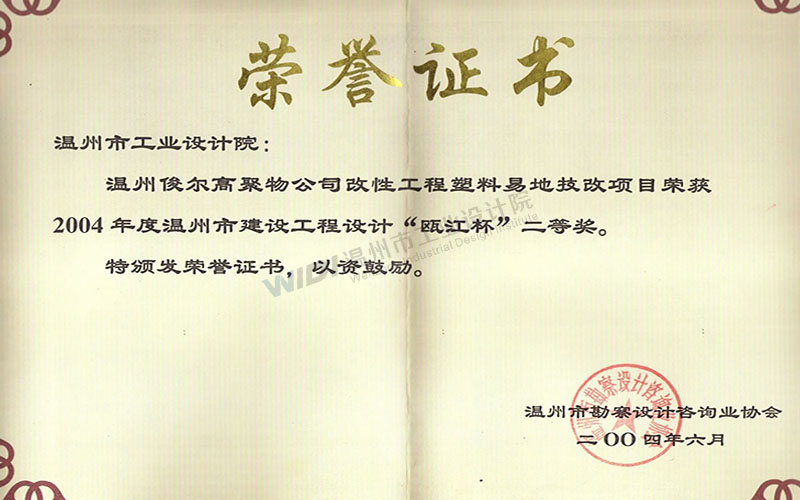 荣誉证书
温州市工业设计院：
温州俊尔高聚物公司改性工程塑料易地技改项目荣获
2004年度温州市建设工程设计“瓯江杯”二等奖。
特颁发荣誉证书，以资鼓励。
WIDI 温州市工业设计院
Wenzhou Industrial Design Institute
温州市勘察设计咨询业协会
二OO四年六月
温州市勘察设计咨询业协会